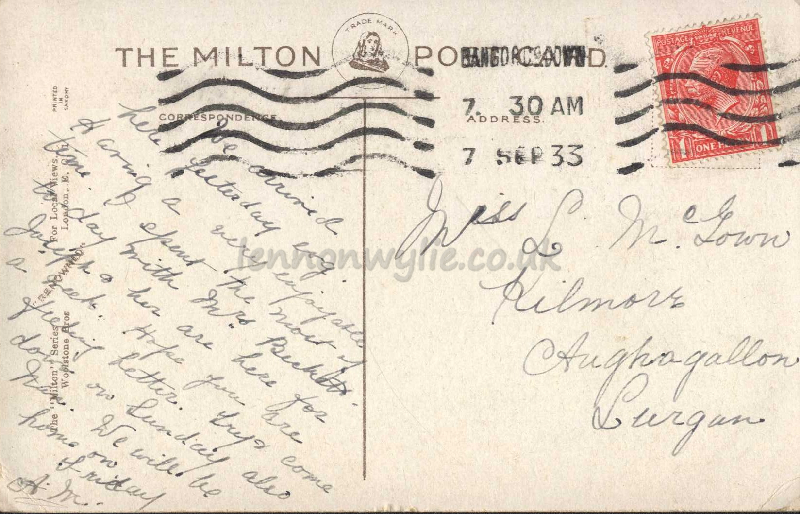 THE MILTON POST CARD.
TRADE MARK
BANGOR CO DOWN
7. 30 AM
7 SEP 33
POSTAGE REVENUE
1 ONE PENNY 1
PRINTED
IN
SAXONY
CORRESPONDENCE
ADDRESS.
We arrived
here yesterday evg.
Having a very enjoyable
time. I spent the most of
to day with Mrs Beckett.
Joseph & her are here for
a week. Hope you are
feeling better. Try & come
down on Sunday also
We will be
home on Friday
A. M.
The "Milton" Series
Woolstone Bros
"RENOWNED"
For Local Views.
London, E.C.
Miss L McGown
Kilmore
Aughagallon
Lurgan
lennonwylie.co.uk